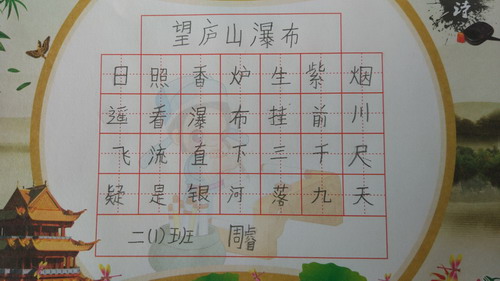 望庐山瀑布
日照香炉生紫烟
遥看瀑布挂前川
飞流直下三千尺
疑是银河落九天
二(1)班 周睿
诗